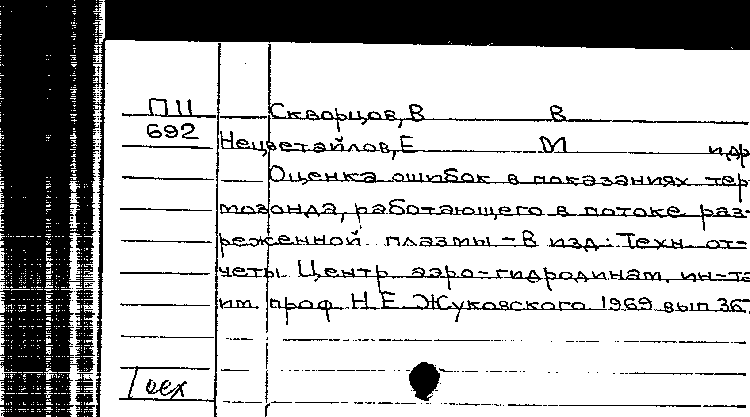 П11 Скворцов, В В
692 Нецветайлов, Е М и др
Оценка ошибок в показаниях тер-
мозонда, работающего в потоке раз-
реженной плазмы – В изд: Техн. от-
четы Центр. аэро-гидродинам. ин-та
им. проф Н. Е. Жуковского 1969 вып 36,